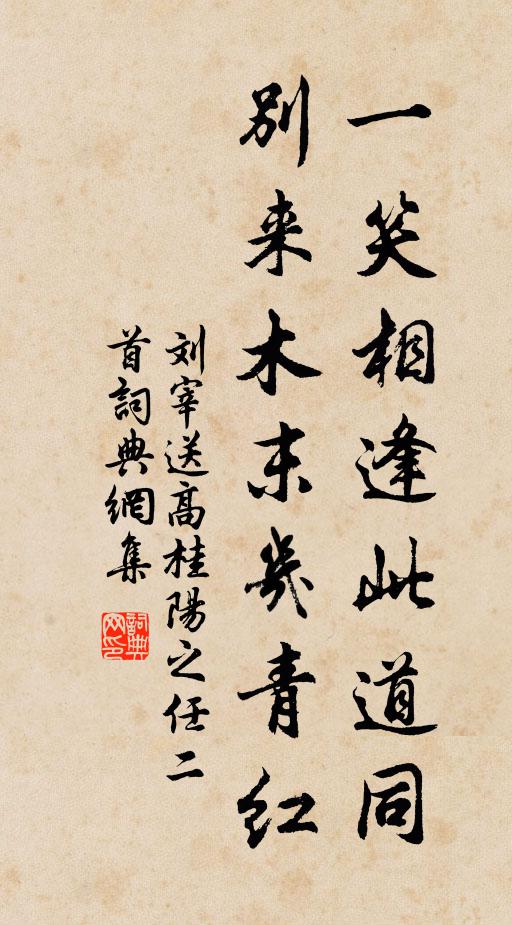 一笑相逢此道同
别来木末幾青红
刘宰送高桂陽之任二
首詞典網集
詞典网印